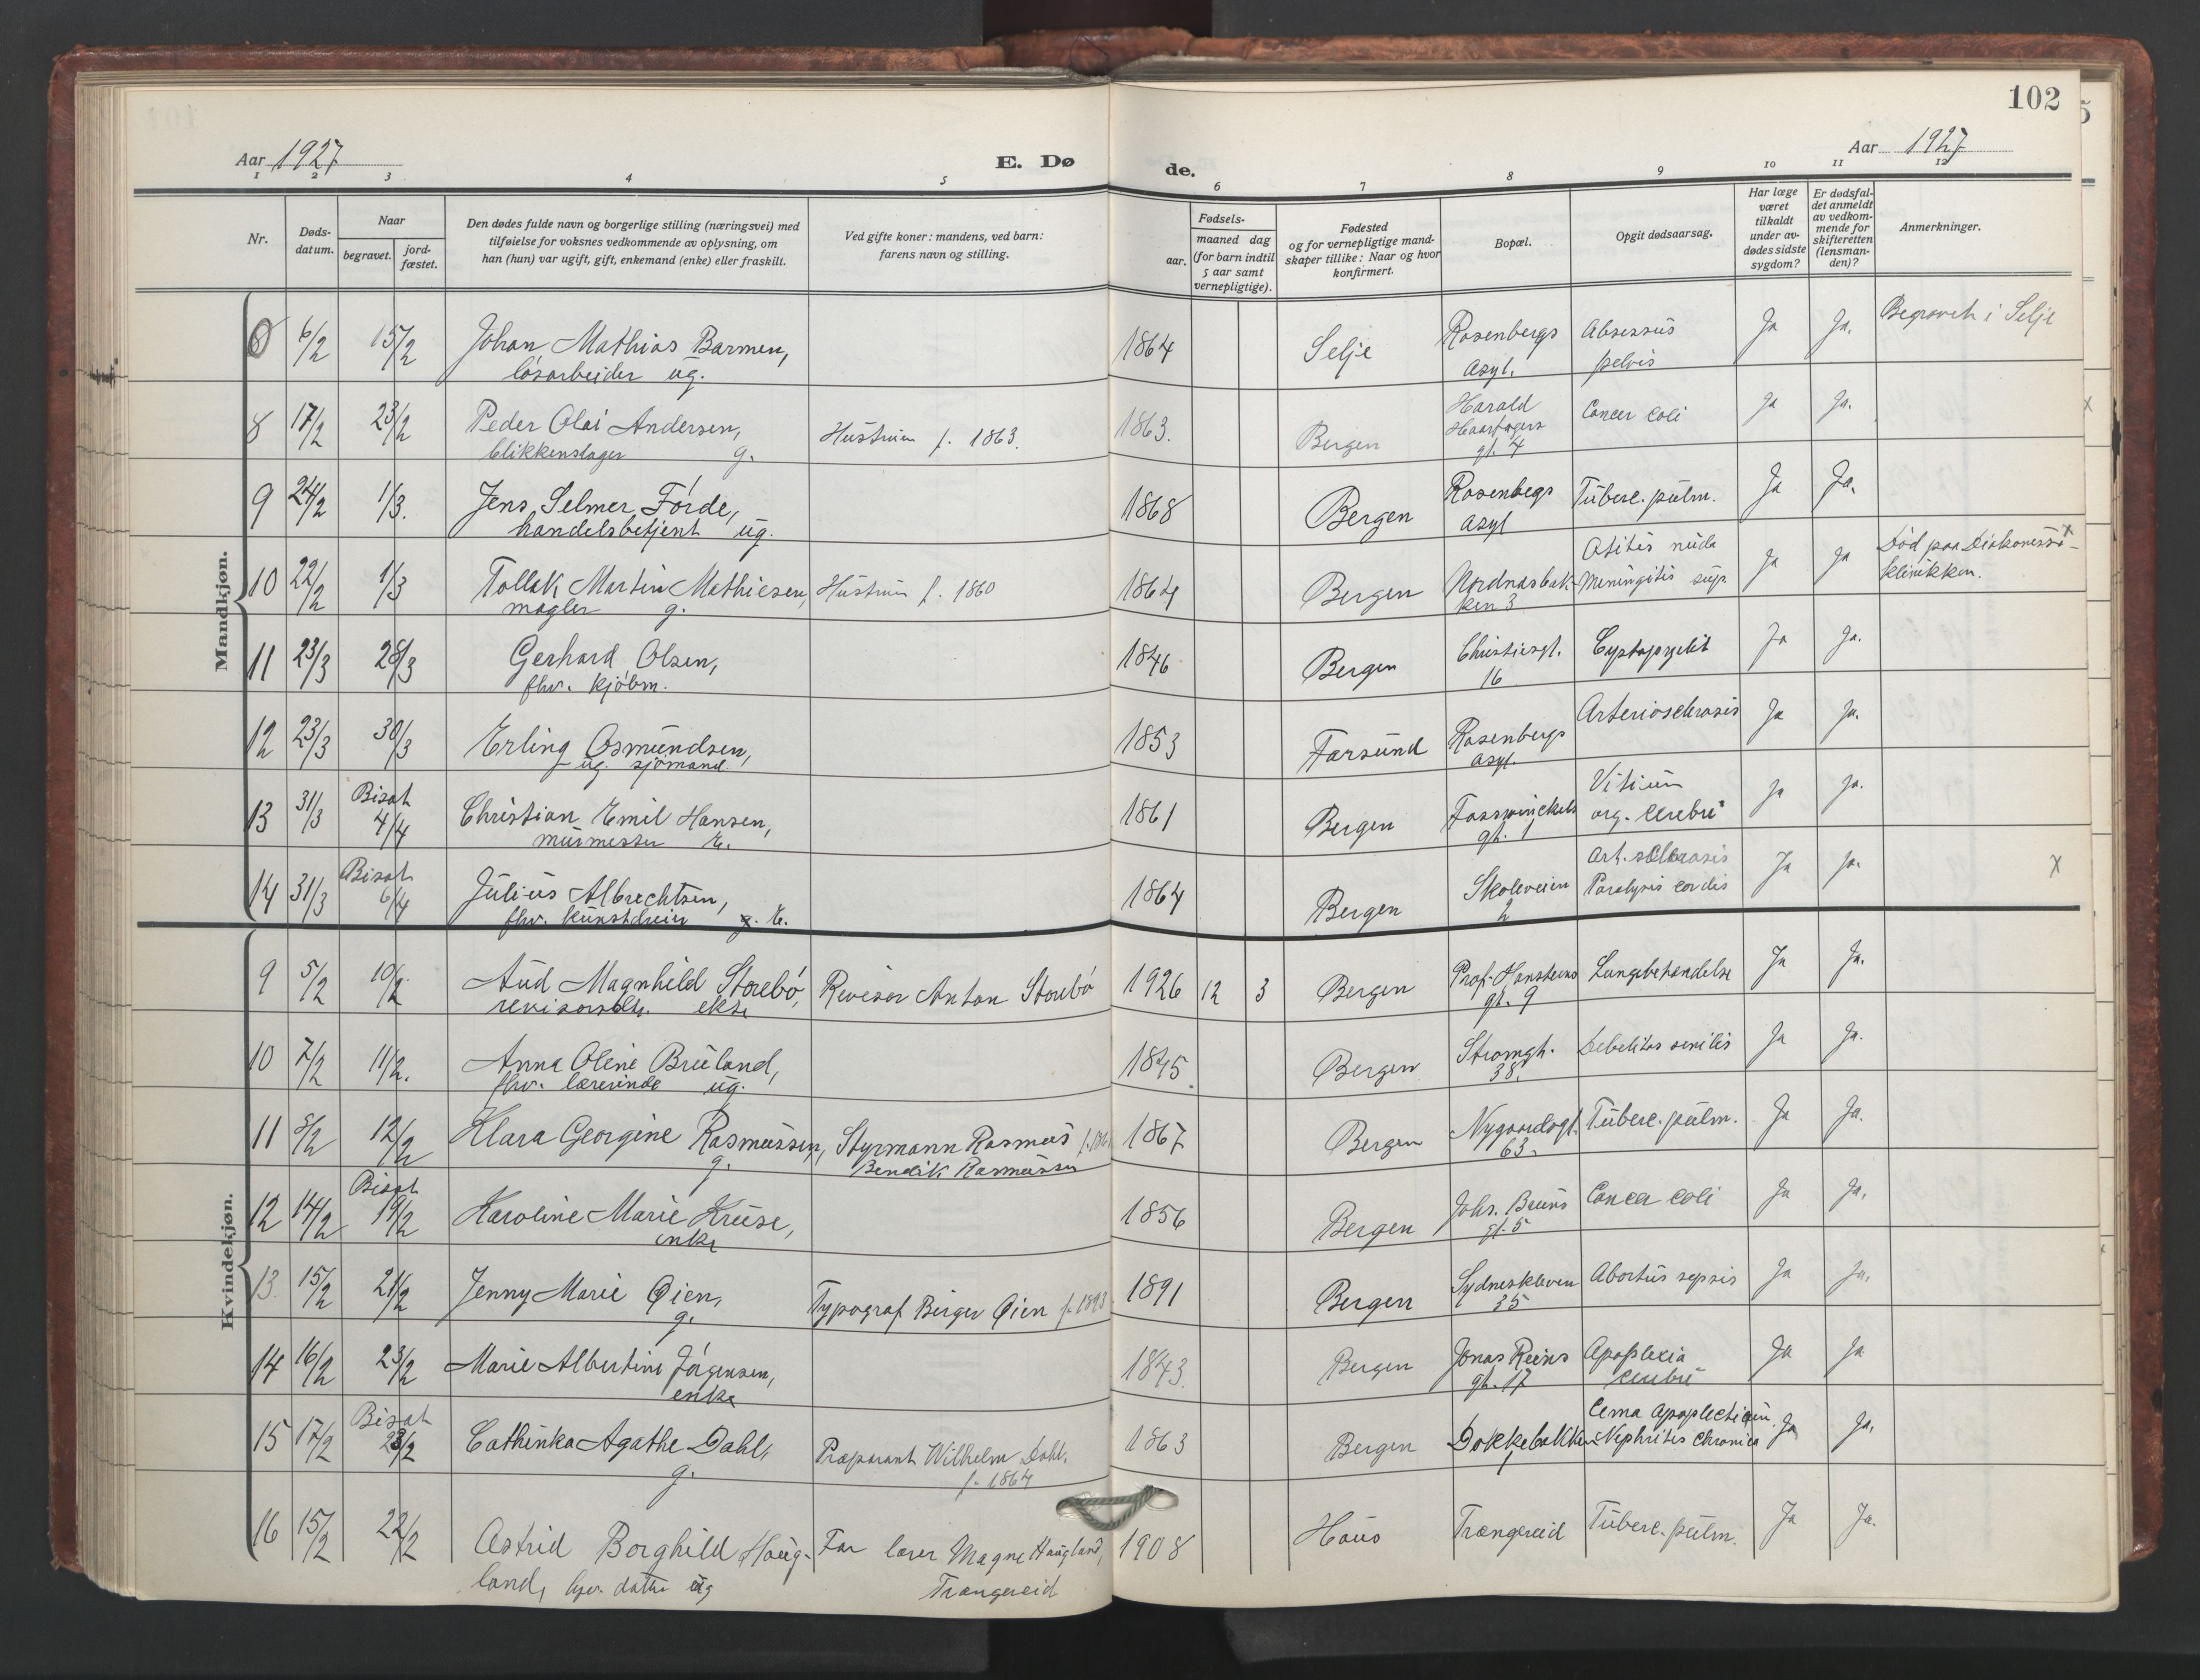 102
Aar 1927
E. Dø
de.
Aar 1927
1 2 3 4 5 6 7 8 9 10 11 12
Nr.
Døds-
datum.
Naar
begravet.
jord-
fæstet.
Den dødes fulde navn og borgerlige stilling (næringsvei) med
tilføielse for voksnes vedkommende av oplysning, om
han (hun) var ugift, gift, enkemand (enke) eller fraskilt.
Ved gifte koner: mandens, ved barn:
farens navn og stilling.
Fødsels-
aar.
maaned dag
(for barn indtil
5 aar samt
vernepligtige).
Fødested
og for vernepligtige mand-
skaper tillike: Naar og hvor
konfirmert.
Bopæl.
Opgit dødsaarsag.
Har læge
været
tilkaldt
under av-
dødes sidste
sygdom?
Er dødsfal-
det anmeldt
av vedkom-
mende for
skifteretten
(lensman-
den)?
Anmerkninger.
Mandkjøn.
8 6/2 15/2 Johan Mathias Barmen, 1864 Selje Rosenbergs Absessus Ja Ja. Begravet i Selje
løsarbeider ug. asyl. pelvis
8 17/2 23/2 Peder Olai Andersen, Hustruen f. 1863. 1863. Bergen Harald Cancer coli Ja Ja.
blikkenslager g. Haarfagers
gt. 4
9 24/2 1/3. Jens Selmer Førde, 1868 Bergen Rosenbegs Tuberc. pulm. Ja Ja.
handelsbetjent ug. asyl
10 22/2 1/3 Tollak Martin Mathiesen, Hustruen f. 1860 1864 Bergen Nordnesbak- Otitis Ja Ja Død paa Diakonesse-
mægler g. ken 3 Meningitis sup. klinikken.
11 23/3 28/3 Gerhard Olsen, 1846 Bergen Christiesgt. Cystopyelit Ja Ja.
fhv. kjøbm. 16
12 23/3 30/3 Erling Osmundsen, 1853 Farsund Rosenbergs Arteriosclerosis Ja Ja.
ug. sjømand. asyl.
13 31/3 Bisat 4/4 Christian Emil Hansen, 1861 Bergen Fosswinckels Vitium Ja Ja.
murmester E. gt. 1 org. cerebri
14 31/3 Bisat 6/4 Julius Albrechtsen, 1864 Bergen Skoleveien Art. sclerosis Ja Ja. x
fhv. kunstdreier g. E. 2 Paralysis cordis
Kvindekjøn.
9 5/2 10/2 Aud Magnhild Storebø, Revisor Anton Storebø 1926 12 3 Bergen Prof. Hansteens Lungebetændelse Ja Ja.
revisorsdtr. ekte gt. 9
10 7/2 11/2. Anna Oline Bruland, 1845. Bergen Strømgt. Debelitas senilis Ja Ja.
fhv. lærerinde ug. 38.
11 8/2 12/2 Klara Georgine Rasmussen, Styrmann Rasmus 1867 Bergen Nygaardsgt. Tuberc. pulm. Ja Ja.
g. Bendik Rasmussen 63.
12 14/2 Bisat 19/2 Karoline Marie Kruse, 1856 Bergen Johs. Bruns Cancer coli Ja Ja.
enke gt. 5
13. 15/2 21/2 Jenny Marie Øien, Typograf Birger Øien f. 1893 1891 Bergen Sydneskleven Abortus sepsis Ja Ja.
g. 35
14 16/2 23/2 Marie Albertine Jørgensen, 1843. Bergen Jonas Reins Apoplexia Ja Ja
enke gt. 17 cerebri
15 17/2 Bisat 23/2 Cathinka Agathe Dahl, Præparant Wilhelm Dahl. 1863 Bergen Dokkebakken Nephritis chronica Ja Ja.
g. f. 1864
16 15/2 22/2 Astrid Borghild Haug- Far lærer Magne Haugland, 1908 Haus Trængereid Tuberc. pulm. Ja Ja.
land, datter ug Trængereid